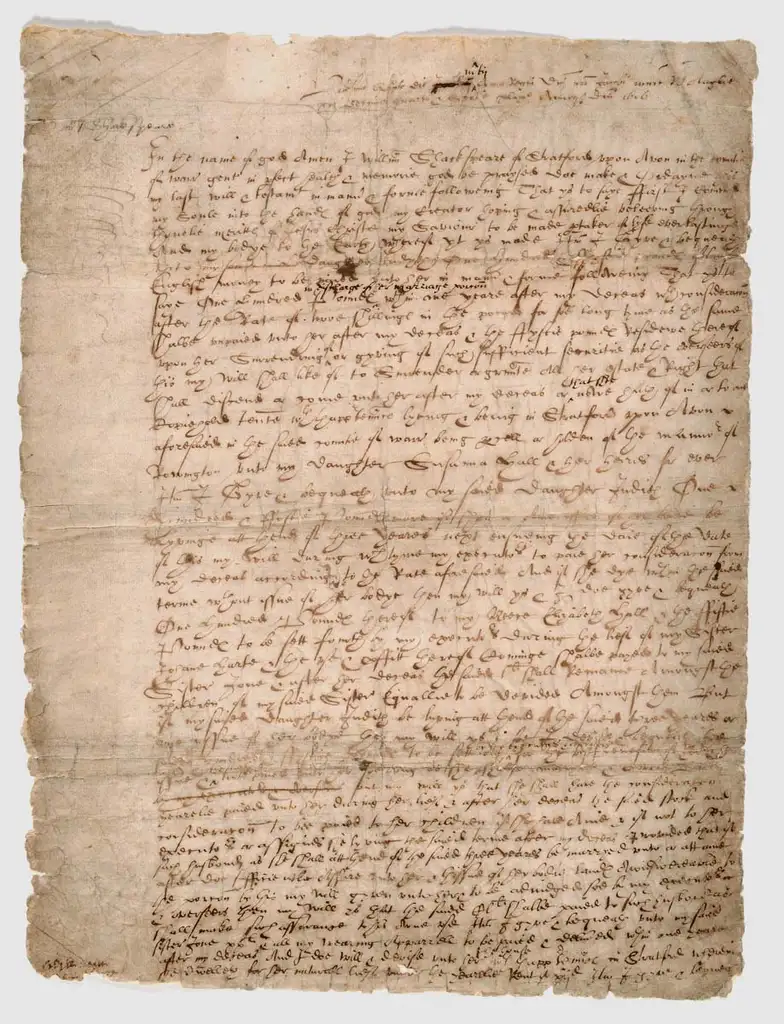 martij
Vicesimo Quinto die Regni Dni nri Jacobi nunc Rx Anglie
decimo quarto & Scotie xlix Annoq Dni 1616
Shackspeare
In the name of god Amen I Willim Shackspeare of Stratford vpon Avon in the countie
of warr gent in pfect health & memorie god be praysed Doe make & Ordayne this
my last will & testamt in mannr & forme followeing That ys to saye ffirst I Comend
my Soule into the hands of god my Creator hoping & assuredlie beleeving through
thonelie merittes of Jesus Christe my Saviour to be made ptaker of lyfe everlastinge
And my bodye to the Earth whereof yt ys made Itm I Gyve & bequeath
vnto my Daughter Judyth One Hundred
English money to be paied vnto her in mannr & forme followeing That ys to
in discharge of her marriage porcion
saye One hundred Poundes wthin one yeare after my deceas wth consideracion
after the Rate of twoe shillinges in the pound for soe long tyme as the same
shalbe vnpaied vnto her after my deceas & the ffyftie poundes Residewe thereof
vpon her Surrendring or gyving of such sufficient securitie as the overseers of
this my will shall like of to Surrender or graunte All her estate & Right that
that shee
shall discend or come vnto her after my deceas or nowe hath of in or to one
Copiehold tenemte wth thappurtenances lyeing & being in Stratford vpon Avon
aforesaied in the saied countie of warr being pcell or holden of the mannor of
Rowington vnto my daughter Susanna Hall & her heires for ever
Itm I Gyve & bequeath vnto my saied Daughter Judith One
Hundred & ffyftie Poundes more be
Lyvinge att thend of three yeares next ensueing the daie of the date
of this my will during wch tyme my executors to paie her consideracion from
my deceas according to the Rate aforesaied And if she dye wthin the saied
terme wthout issue of her bodye then my will ys & I doe gyve & bequeath
One Hundred Poundes thereof to my Neece Elizabeth Hall & the ffiftie
Poundes to be sett fourth by my executors during the lief of my Sister
Johane Harte & the vse & pffitt thereof Cominge shalbe payed to my saied
Sister Jone & after her deceas the saied shall Remaine Amongst the
children of my saied Sister Equallie to be devided Amongst them But
if my saied daughter Judith be lyving att thend of the saied three yeares or
anie issue of her bodye then my will ys
my will ys that she shall have the consideracion
yearelie paied vnto her during her lief & after her deceas the saied stock and
consideracion to be paied to her children if she have Anie & if not to her
executors or assignes she lyving the saied terme after my deceas Provided that if
such husbond as she shall att thend of the saied three yeares be marryed vnto or att anie
after doe sufficientlie Assure vnto her & thissue of her bodie landes Awnswereable to
the porcion by this my will gyven vnto her & to be adiudged soe by my executors
& overseers then my will ys that the saied shalbe paied to such husbond as
shall make such assurance to his owne vse Itm I gyve & bequeath vnto my saied
sister Jone & all my wearing Apparrell to be paied & delivered wthin one yeare
after my deceas And I doe will & devise vnto her wth thappurtenances in Stratford wherein
she dwelleth for her naturall lief vnder the yearelie Rent of Itm I gyve & bequeath